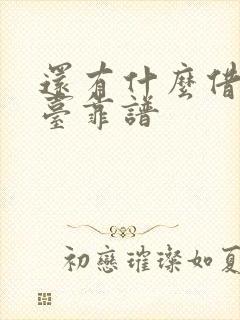 還有什麼借
臺靠譜
初戀璀璨如夏